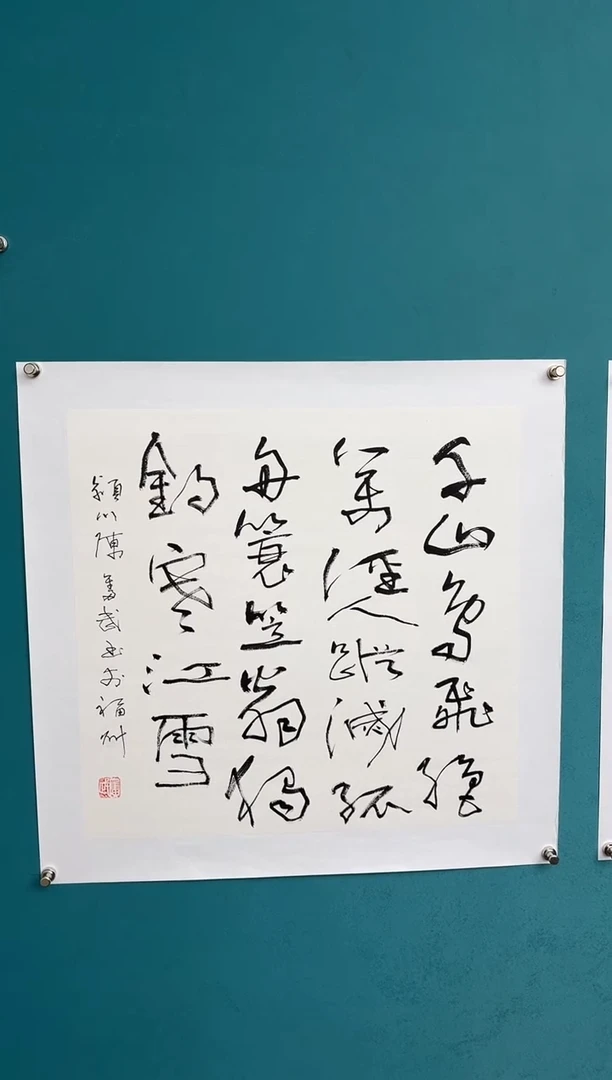 千山鳥飛絕
萬徑人蹤滅孤
舟簑笠翁獨
釣寒江雪
潁川陳武書於福州